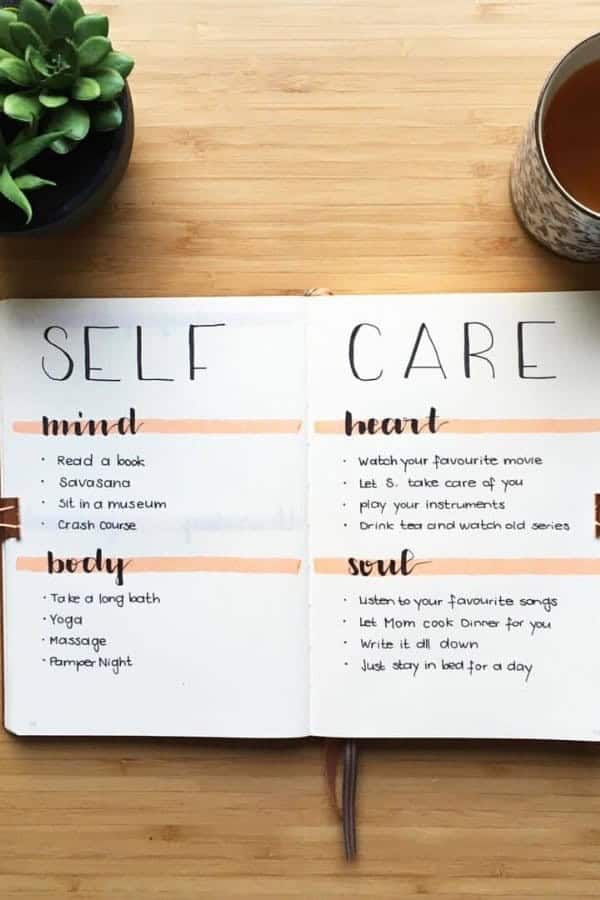 SELF CARE
mind
· Read a book
· Savasana
· Sit in a museum
· Crash course
body
· Take a long bath
· Yoga
· Massage
· Pamper Night
heart
· Watch your favourite movie
· Let S. take care of you
· play your instruments
· Drink tea and watch old series
soul
· Listen to your favourite songs
· Let Mom cook Dinner for you
· Write it all down
· Just stay in bed for a day